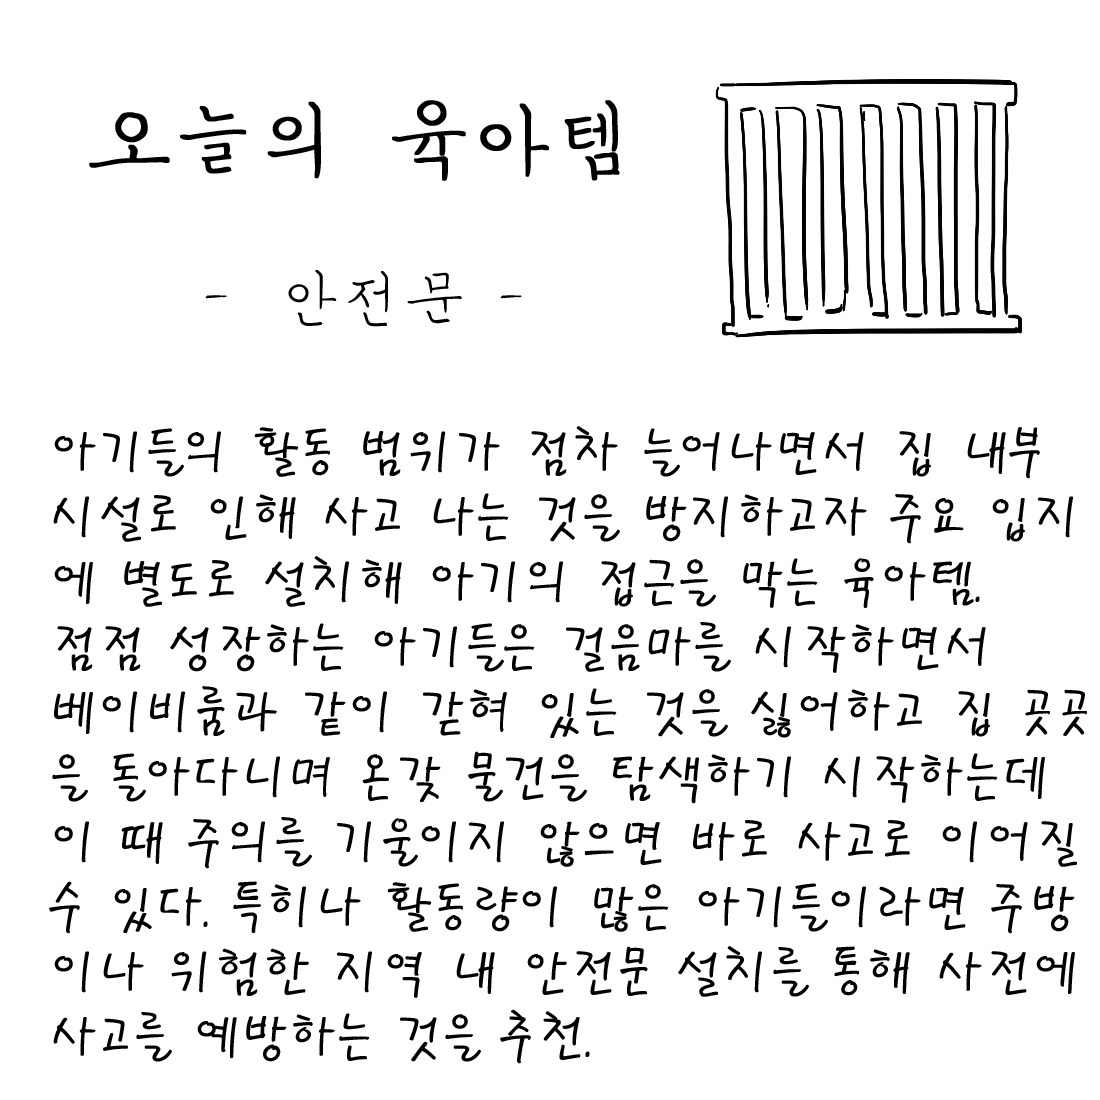 오늘의 육아템
- 안전문 -
아기들의 활동 범위가 점차 늘어나면서 집 내부
시설로 인해 사고 나는 것을 방지하고자 주요 입지
에 별도로 설치해 아기의 접근을 막는 육아템.
점점 성장하는 아기들은 걸음마를 시작하면서
베이비룸과 같이 갇혀 있는 것을 싫어하고 집 곳곳
을 돌아다니며 온갖 물건을 탐색하기 시작하는데
이 때 주의를 기울이지 않으면 바로 사고로 이어질
수 있다. 특히나 활동량이 많은 아기들이라면 주방
이나 위험한 지역 내 안전문 설치를 통해 사전에
사고를 예방하는 것을 추천.